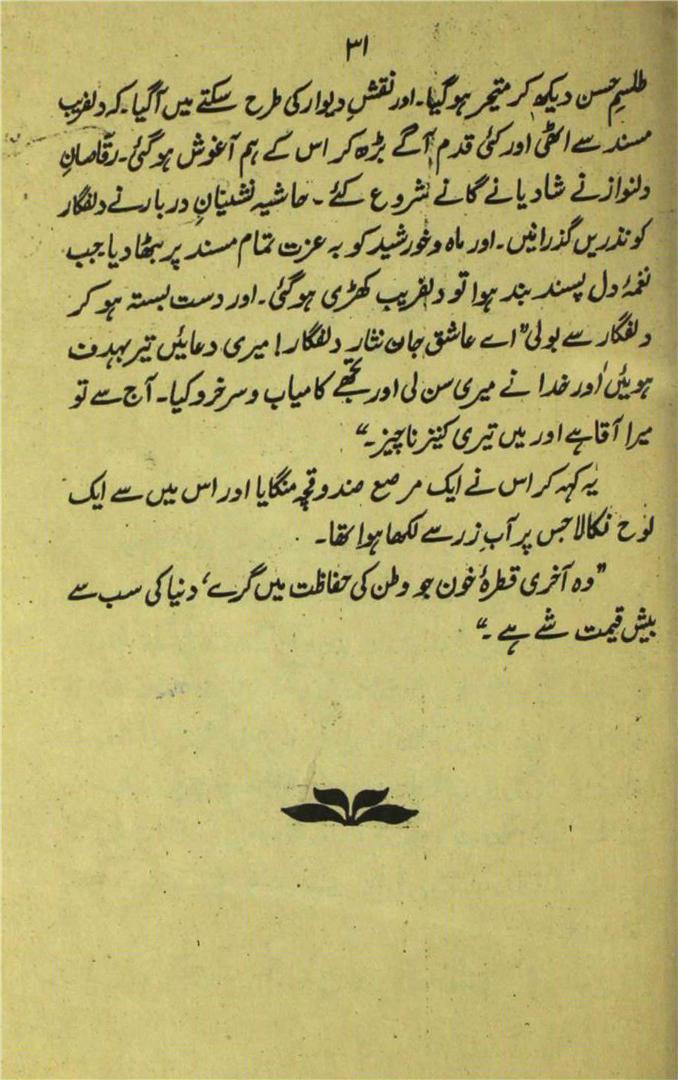 ۳۱
طلسمِ حسن دیکھ کر متحیر ہو گیا۔ اور نقشِ دیوار کی طرح سکتے میں آ گیا۔ کہ دلفریب
مسند سے اٹھی اور کئی قدم آگے بڑھ کر اس کے ہم آغوش ہو گئی۔ رقّاصانِ
دلنواز نے شادیانے گانے شروع کئے۔ حاشیہ نشینانِ دربار نے دلفگار
کو نذریں گذرانیں۔ اور ماہ و خورشید کو بہ عزت تمام مسند پر بٹھا دیا جب
نغمۂ دل پسند بند ہوا تو دلفریب کھڑی ہو گئی۔ اور دست بستہ ہو کر
دلفگار سے بولی ”اے عاشق جان نثار دلفگار! میری دعائیں تیر بہدف
ہوئیں اور خدا نے میری سن لی اور تجھے کامیاب و سرخرو کیا۔ آج سے تو
میرا آقا ہے اور میں تیری کنیز ناچیز۔“
یہ کہہ کر اس نے ایک مرصع صندوقچہ منگایا اور اس میں سے ایک
لوح نکالا جس پر آبِ زر سے لکھا ہوا تھا۔
”وہ آخری قطرۂ خون جو وطن کی حفاظت میں گرے، دنیا کی سب سے
بیش قیمت شے ہے۔“